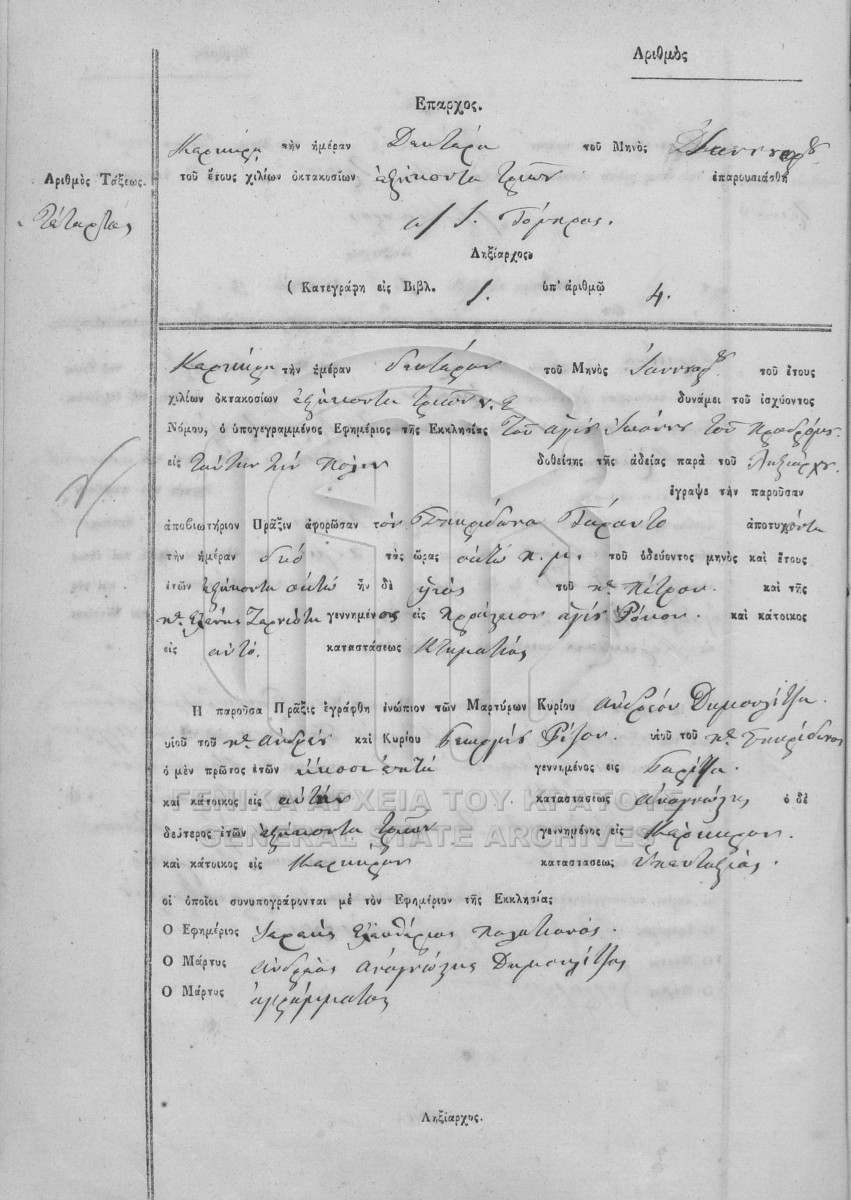 Αριθμὸς
Επαρχος.
τὴν ἡμέραν Δευτέρα τοῦ Μηνὸς Ἰαννουαρ
Αριθμὸς Τάξεως.
τοῦ ἔτους χιλίων ὀκτακοσίων ἑξήκοντα τριῶν ἐπαρουσιάσθη
Τέταρτος
Ληξίαρχος
( Κατεγράφη εἰς Βιβλ. 1. ὑπ' ἀριθμῷ 4.
τὴν ἡμέραν δευτέραν τοῦ Μηνὸς Ἰαννουαρ τοῦ ἔτους
χιλίων ὀκτακοσίων ἑξήκοντα τριῶν δυνάμει τοῦ ἰσχύοντος
Νόμου, ὁ ὑπογεγραμμένος Ἐφημέριος τῆς Ἐκκλησίας τοῦ ἁγίου Ἰωάννου τοῦ Προδρόμου
εἰς ταύτην τὴν πόλιν δοθείσης τῆς ἀδείας παρὰ τοῦ Ληξιάρχου
ἔγραψε τὴν παροῦσαν
ἀποβιωτήριον Πρᾶξιν ἀφορῶσαν τὸν Σπυρίδωνα ἀποτυχόντα
τὴν ἡμέραν δύο τὰς ὥρας ὀκτὼ π.μ. τοῦ ὁδεύοντος μηνὸς καὶ ἔτους
ἐτῶν ἑξήκοντα ὀκτὼ ἦν δὲ υἱὸς τοῦ πο. Πέτρου. καὶ τῆς
πο. Ἑλένης γεννημένος εἰς προάστειον ἁγίου Ρόκου. καὶ κάτοικος
εἰς αὐτό. καταστάσεως κτηματίας
Η παροῦσα Πρᾶξις ἐγράφθη ἐνώπιον τῶν Μαρτύρων Κυρίου Ἀνδρέου Δημουλίτζα
υἱοῦ τοῦ πο. Ἀνδρέου καὶ Κυρίου Γεωργίου Ρίζου. υἱοῦ τοῦ πο. Σπυρίδωνος
ὁ μὲν πρῶτος ἐτῶν εἴκοσι ἑπτὰ γεννημένος εἰς Γαρίτζα.
καὶ κάτοικος εἰς αὐτὴν καταστάσεως ἀναγνώστης ὁ δὲ
δεύτερος ἐτῶν ἑξήκοντα τριῶν γεννημένος εἰς Κέρκυραν.
καὶ κάτοικος εἰς Κέρκυραν καταστασεως
οἱ ὁποῖοι συνυπογράφονται μὲ τὸν Ἐφημέριον τῆς Ἐκκλησίας
Ο Ἐφημέριος Ἱερεὺς Ἐλευθέριος Πολυτιανός.
Ο Μάρτυς Ἀνδρέας Ἀναγνώστης Δημουλίτζας
Ο Μάρτυς ἀγράμματος
Ληξίαρχος.
ΓΕΝΙΚΑ ΑΡΧΕΙΑ ΤΟΥ ΚΡΑΤΟΥΣ
GENERAL STATE ARCHIVES